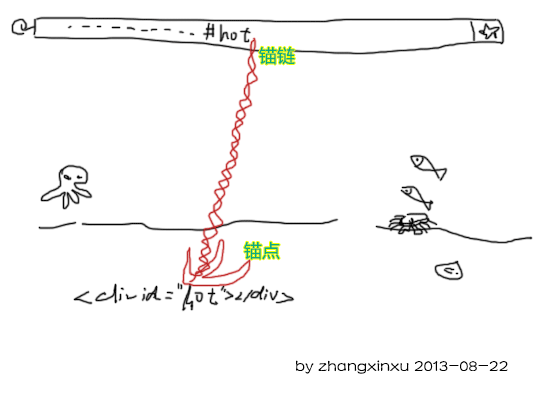 #hot
锚链
锚点
<div id="hot"></div>
by zhangxinxu 2013-08-22